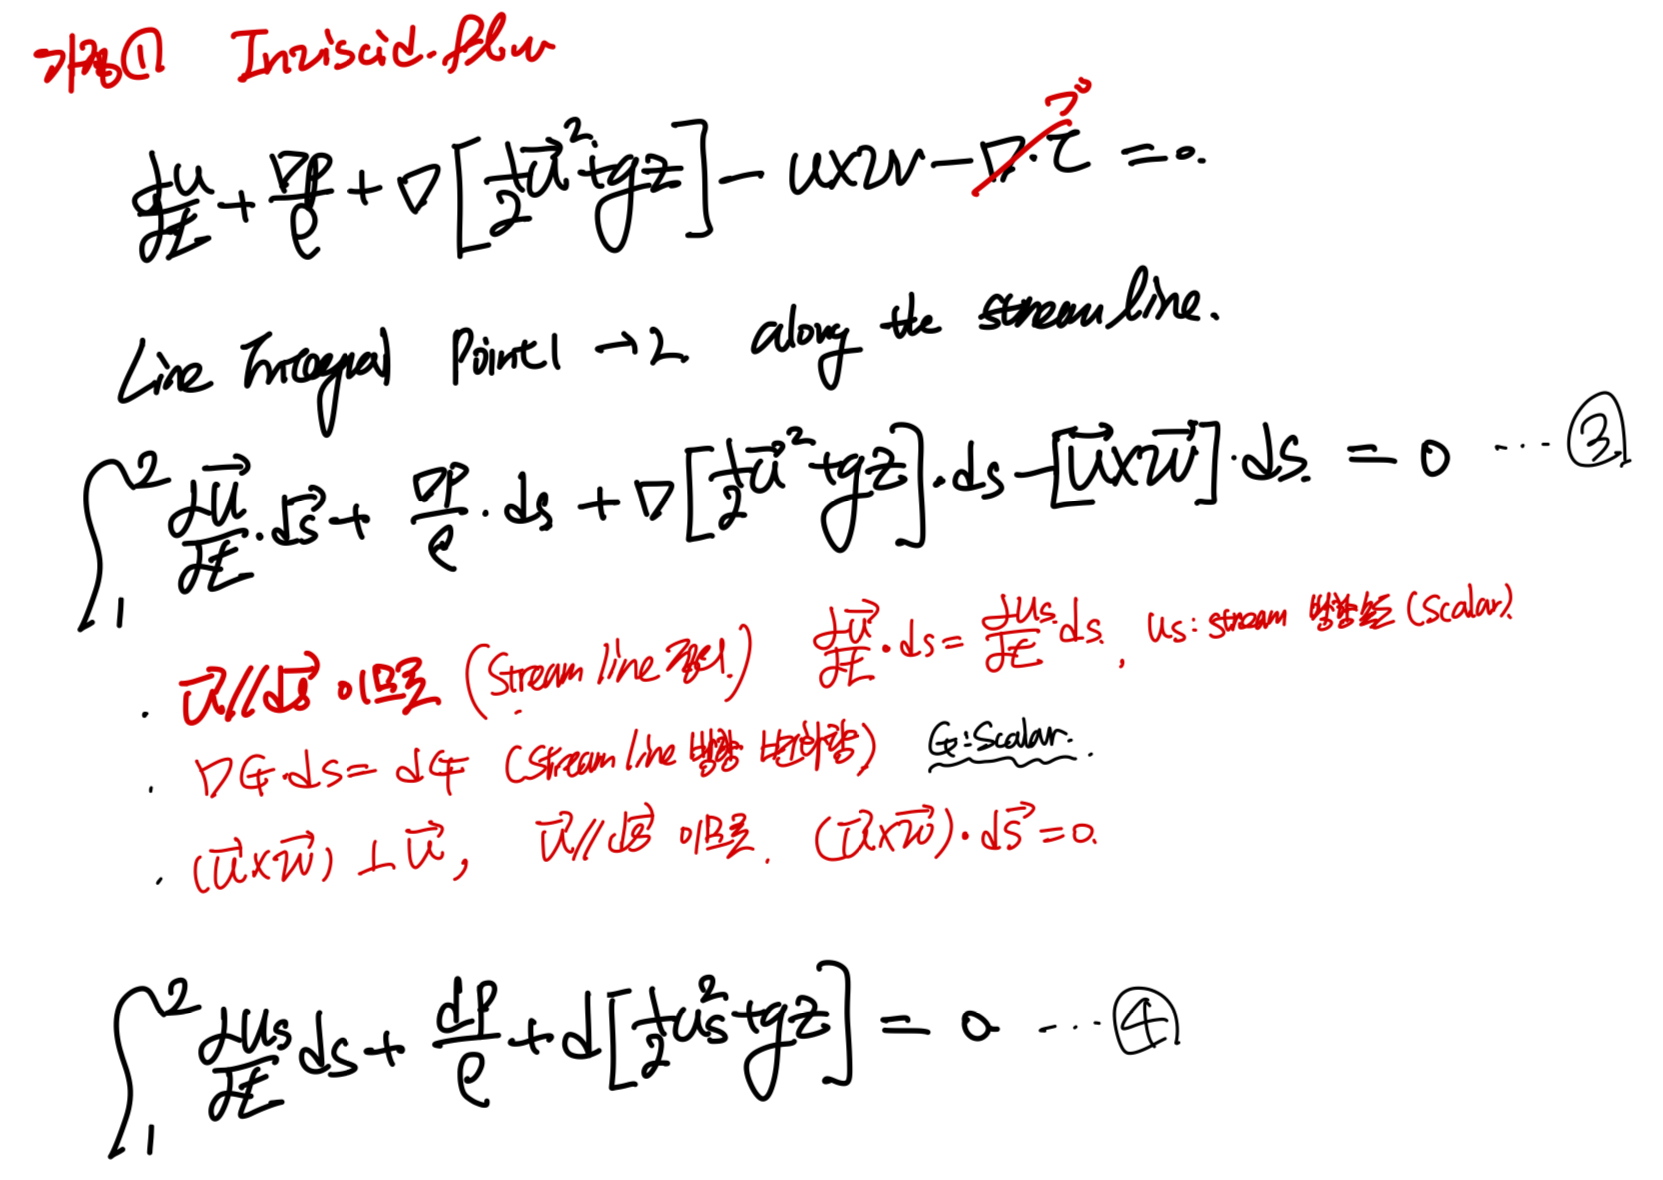 가정① Inviscid flow
∂u/∂t + ∇P/ρ + ∇[½u⃗² + gz] - u×w - ∇·τ→0 = 0.
Line Integral Point 1 → 2 along the stream line.
∫₁² ∂u⃗/∂t · ds⃗ + ∇P/ρ · ds + ∇[½u⃗² + gz] · ds - [u⃗×w⃗] · ds. = 0 ... ③
· u⃗//ds⃗ 이므로 (Stream line 정의.) ∂u⃗/∂t · ds = ∂us/∂t ds. , us : stream 방향 속도 (Scalar)
· ∇G·ds = dG (Stream line 방향 변화량) G : Scalar.
· (u⃗×w⃗) ⊥ u⃗, u⃗//ds⃗ 이므로. (u⃗×w⃗)·ds⃗ = 0.
∫₁² ∂us/∂t ds + dP/ρ + d[½us² + gz] = 0 ... ④